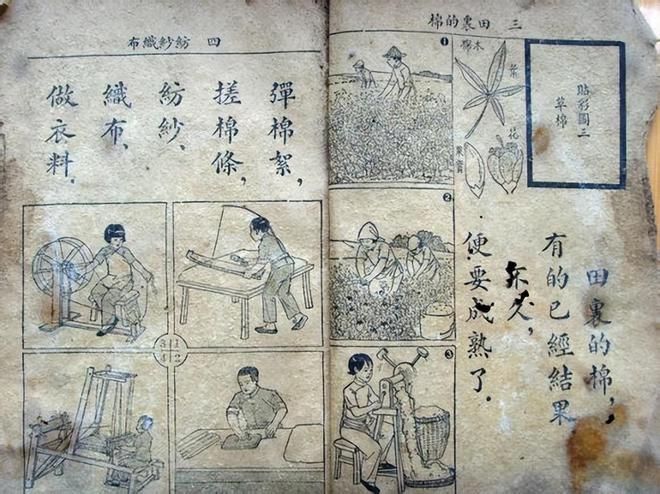 三 田裏的棉
貼彩圖三
草棉
木棉
葉
花
果實
田裏的棉,
有的已經結果
不久,
便要成熟了.
1
2
3
四 紡紗織布
彈棉絮,
搓棉條,
紡紗、
織布、
做衣料.
3 1
4 2